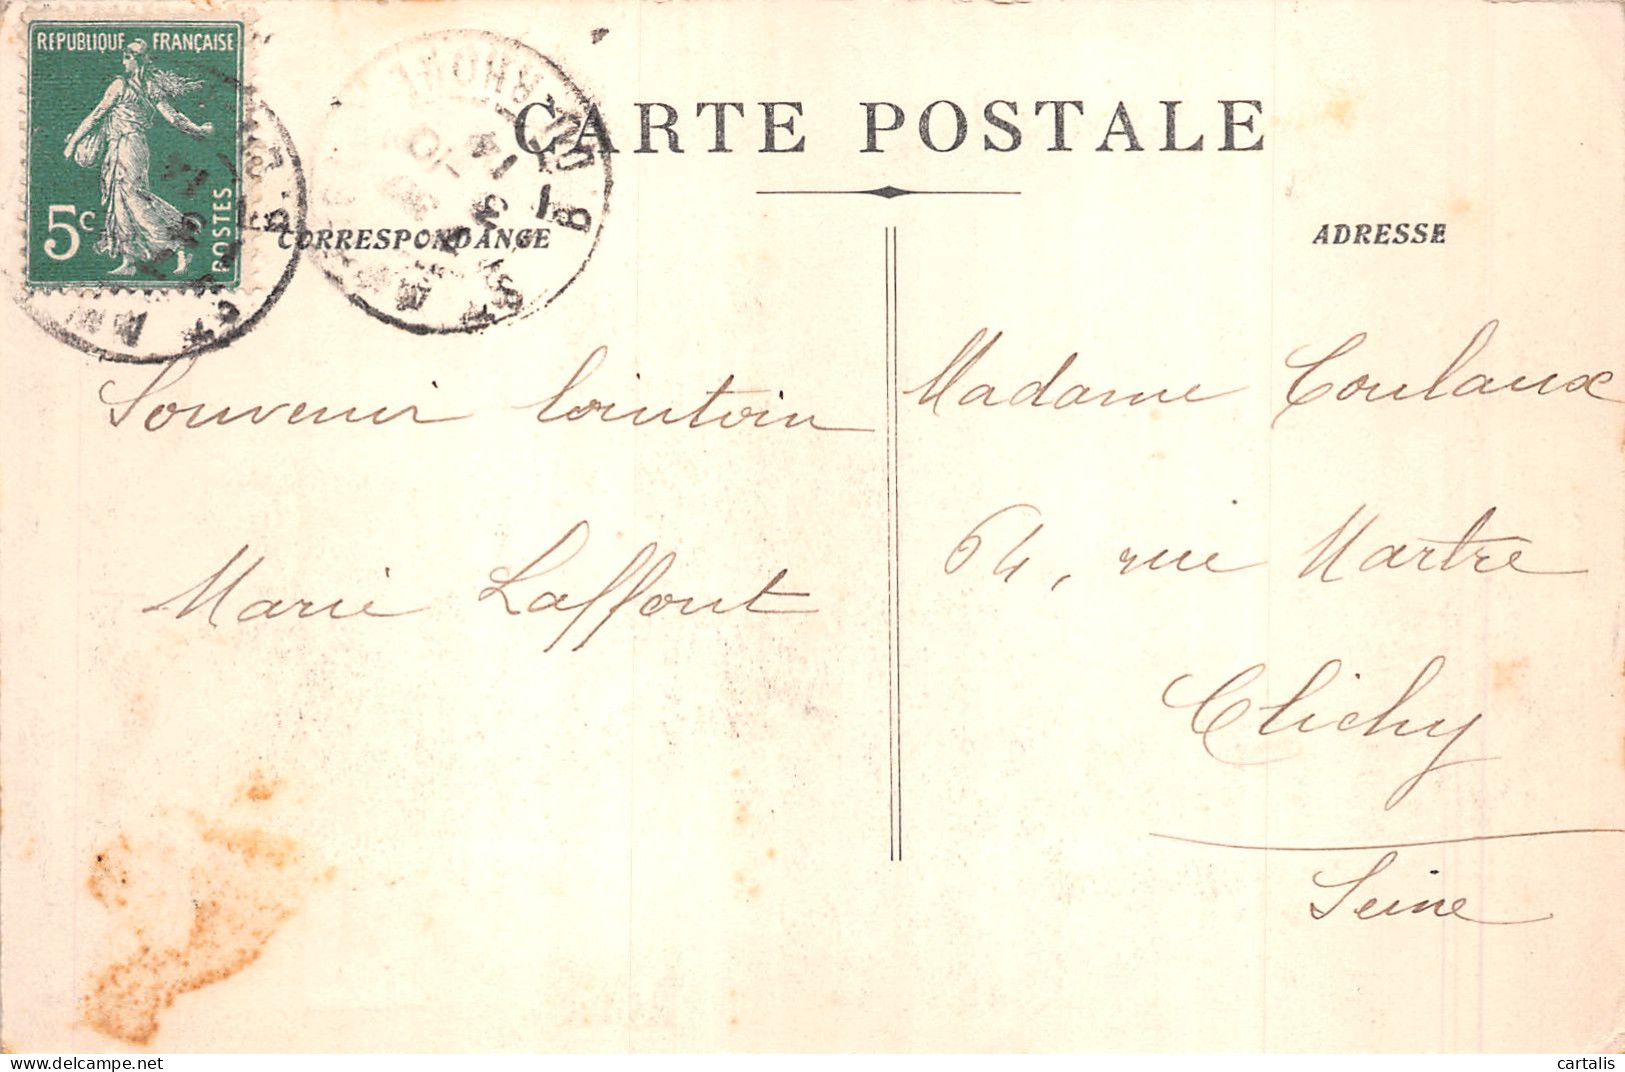 REPUBLIQUE FRANÇAISE
5c
POSTES
CARTE POSTALE
CORRESPONDANCE
ADRESSE
Souvenir lointain
Marie Laffont
Madame Coulaux
64, rue Martre
Clichy
Seine
cartalis